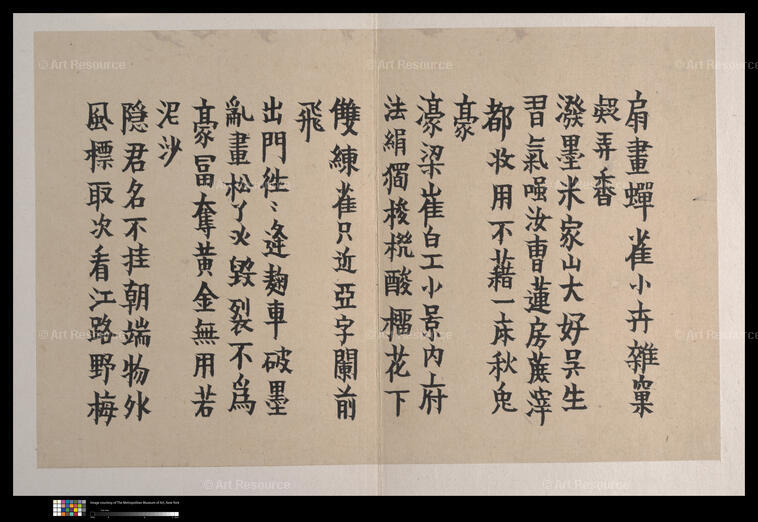 扇畫蟬雀小卉雜窠
弄香
潑墨米家山大好吳生
習氣嗤汝曹蓮房蔗滓
都妝用不藉一床秋兔
豪
濠梁崔白工小景內府
法絹獨梭酸榴花下
雙練雀只近亞字闌前
飛
出門往〻逢麴車破墨
亂畫松丫叉毀裂不爲
豪冨奪黃金無用若
泥沙
隐君名不挂朝端物外
風標取次看江路野梅
© Art Resource
© Art Resource
© Art Resource
© Art Resource
© Art Resource
© Art Resource
© Art Resource
© Art Resource
Image courtesy of The Metropolitan Museum of Art, New York